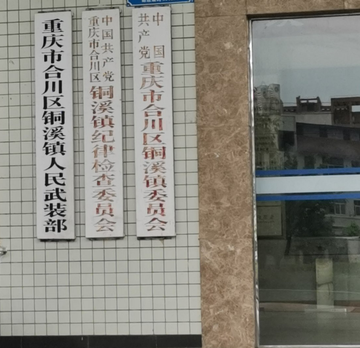 重庆市合川区铜溪镇人民武装部
中国共产党
重庆市合川区
铜溪镇纪律检查委员会
中国
共产党
重庆市合川区铜溪镇委员会